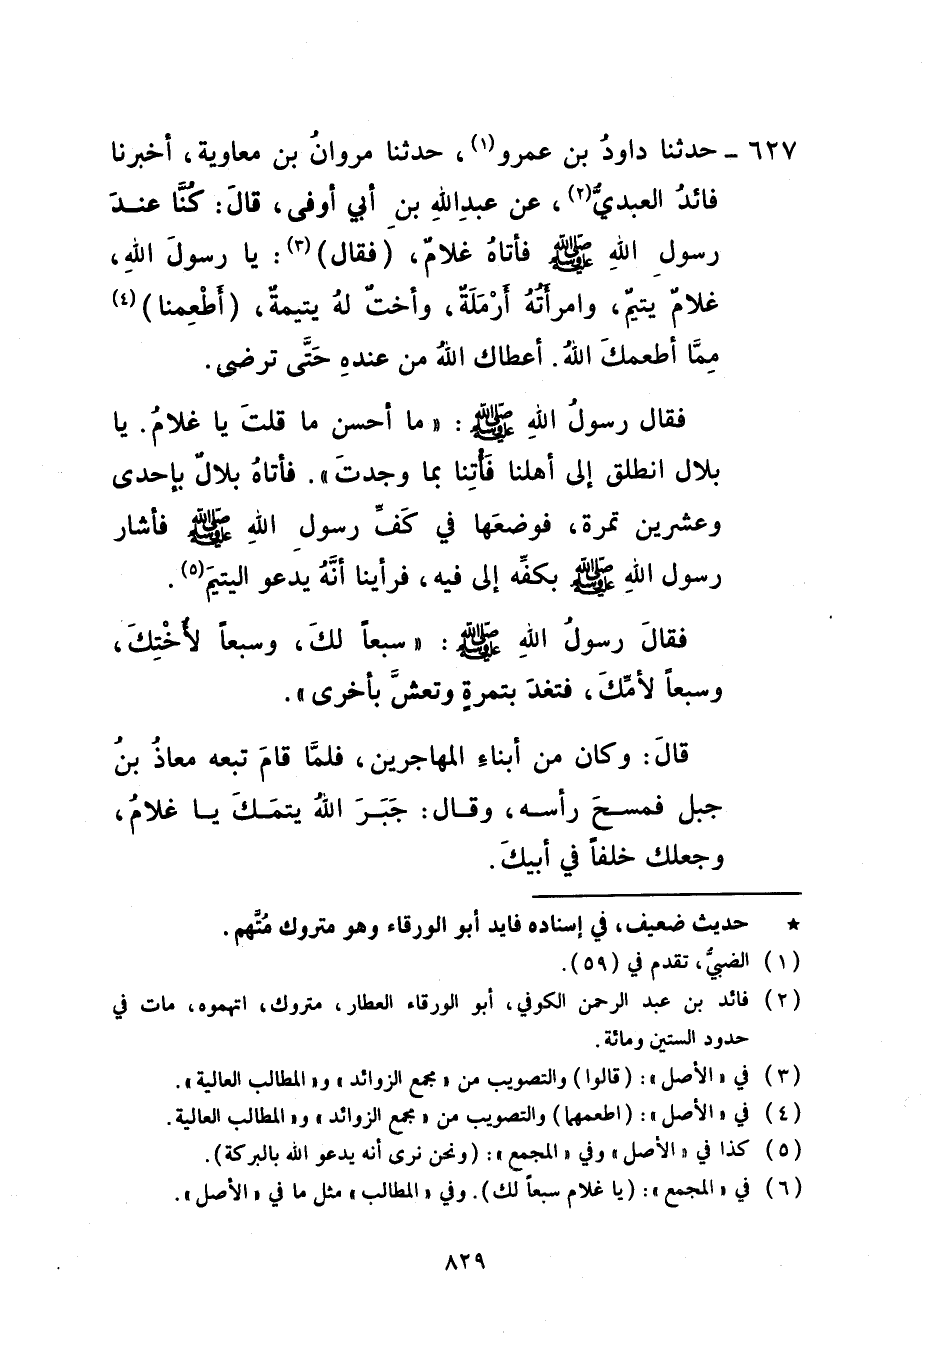 ٦٢٧ ـ حدثنا داودُ بن عمرو(١)، حدثنا مروانُ بن معاوية، أخبرنا
فائدُ العبديُّ(٢)، عن عبدِاللهِ بنِ أبي أوفى، قالَ: كُنَّا عندَ
رسولِ اللهِ ﷺ فأتاهُ غلامٌ، (فقال)(٣): يا رسولَ اللهِ،
غلامٌ يتيمٌ، وامرأَتُهُ أَرْمَلَةٌ، وأختٌ لهُ يتيمةٌ، (أَطْعِمنا)(٤)
مِمَّا أطعمكَ اللهُ. أعطاك اللهُ من عندهِ حَتَّى ترضى.
فقال رسولُ اللهِ ﷺ: «ما أحسن ما قلتَ يا غلامُ. يا
بلال انطلق إلى أهلنا فَأْتِنا بما وجدتَ». فأتاهُ بلالٌ بإحدى
وعشرين تمرة، فوضعَها في كَفِّ رسولِ اللهِ ﷺ فأشار
رسول اللهِ ﷺ بكفِّه إلى فيه، فرأينا أنَّهُ يدعو اليتيمَ(٥).
فقالَ رسولُ اللهِ ﷺ: «سبعاً لكَ، وسبعاً لأُخْتِكَ،
وسبعاً لأمِّكَ، فتغدَ بتمرةٍ وتعشَّ بأخرى».
قالَ: وكان من أبناءِ المهاجرين، فلمَّا قامَ تبعه معاذُ بنُ
جبل فمسحَ رأسه، وقال: جَبَرَ اللهُ يتمَكَ يا غلامُ،
وجعلك خلفاً في أبيكَ.
★ حديث ضعيف، في إسناده فايد أبو الورقاء وهو متروك مُتَّهم.
(١) الضبيُّ، تقدم في (٥٩).
(٢) فائد بن عبد الرحمن الكوفي، أبو الورقاء العطار، متروك، اتهموه، مات في
حدود الستين ومائة.
(٣) في «الأصل»: (قالوا) والتصويب من «مجمع الزوائد» و«المطالب العالية».
(٤) في «الأصل»: (اطعمها) والتصويب من «مجمع الزوائد» و«المطالب العالية.
(٥) كذا في «الأصل» وفي «المجمع»: (ونحن نرى أنه يدعو الله بالبركة).
(٦) في «المجمع»: (يا غلام سبعاً لك). وفي «المطالب» مثل ما في «الأصل».
٨٢٩